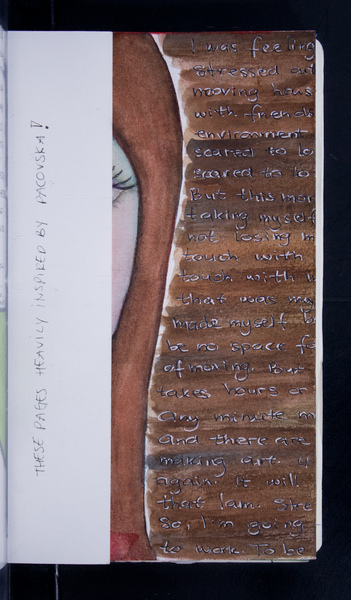 THESE PAGES HEAVILY INSPIRED BY PACOVSKA!
I was feeling
stressed out
moving hous
with friends
environment
scared to lo
scared to lo
But this mor
taking myself
not losing m
touch with
touch with
that was my
made myself
be no space fo
of moving. But
takes hours or
any minute m
And there are
making art
again. It will
that I am. Stre
so, I'm going
to work. To be